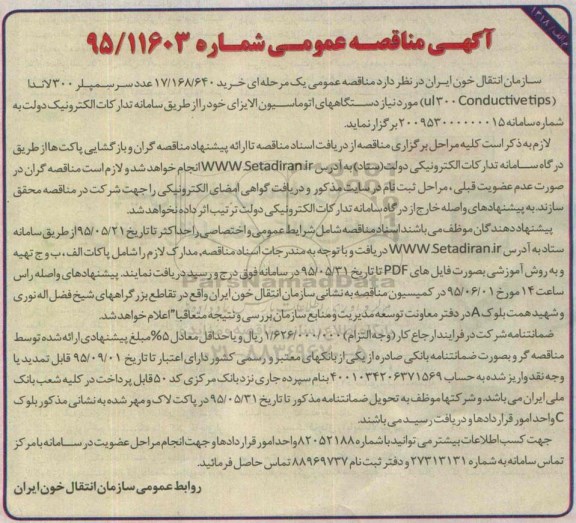 م الف: ۱۳۱۸
آگهی مناقصه عمومی شماره ۹۵/۱۱۶۰۳
سازمان انتقال خون ایران در نظر دارد مناقصه عمومی یک مرحله ای خرید ۱۷/۱۶۸/۶۴۰ عدد سرسمپلر ۳۰۰ لاندا
(ul۳۰۰ Conductive tips) مورد نیاز دستگاههای اتوماسیون الایزای خود را از طریق سامانه تدارکات الکترونیک دولت به
شماره سامانه ۲۰۰۹۵۳۰۰۰۰۰۰۰۱۵ برگزار نماید.
لازم به ذکر است کلیه مراحل برگزاری مناقصه از دریافت اسناد مناقصه تا ارائه پیشنهاد مناقصه گران و بازگشایی پاکت ها از طریق
درگاه سامانه تدارکات الکترونیکی دولت (ستاد) به آدرس WWW.Setadiran.ir انجام خواهد شد و لازم است مناقصه گران در
صورت عدم عضویت قبلی، مراحل ثبت نام در سایت مذکور و دریافت گواهی امضای الکترونیکی را جهت شرکت در مناقصه محقق
سازند. به پیشنهادهای واصله خارج از درگاه سامانه تدارکات الکترونیکی دولت ترتیب اثر داده نخواهد شد.
پیشنهاد دهندگان موظف می باشند اسناد مناقصه شامل شرایط عمومی و اختصاصی را حداکثر تا تاریخ ۹۵/۰۵/۲۱ از طریق سامانه
ستاد به آدرس WWW.Setadiran.ir دریافت و با توجه به مندرجات اسناد مناقصه، مدارک لازم را شامل پاکات الف، ب و ج تهیه
و به روش آموزشی بصورت فایل های PDF تا تاریخ ۹۵/۰۵/۳۱ در سامانه فوق درج و رسید دریافت نمایند. پیشنهادهای واصله راس
ساعت ۱۴ مورخ ۹۵/۰۶/۰۱ در کمیسیون مناقصه به نشانی سازمان انتقال خون ایران واقع در تقاطع بزرگراههای شیخ فضل اله نوری
و شهید همت بلوک A در دفتر معاونت توسعه مدیریت و منابع سازمان بررسی و نتیجه متعاقباً اعلام خواهد شد.
ضمانتنامه شرکت در فرایند ارجاع کار (وجه التزام) ۱/۶۲۶/۰۰۰/۰۰۰ ریال و یا حداقل معادل ۵% مبلغ پیشنهادی ارائه شده توسط
مناقصه گر و بصورت ضمانتنامه بانکی صادره از یکی از بانکهای معتبر داخلی کشور دارای اعتبار تا تاریخ ۹۵/۰۹/۰۱ قابل تمدید یا
وجه نقد واریز شده به حساب ۴۰۰۱۰۳۴۲۰۶۳۷۱۵۶۹ بنام سپرده جاری نزد بانک مرکزی کد ۵۰ قابل پرداخت در کلیه شعب بانک
ملی ایران می باشد و شرکتها موظف به تحویل ضمانتنامه مذکور تا تاریخ ۹۵/۰۵/۳۱ در پاکت لاک و مهر شده به نشانی مذکور بلوک
C واحد امور قراردادها و دریافت رسید می باشند.
جهت کسب اطلاعات بیشتر می توانید با شماره ۸۲۰۵۲۱۸۸ واحد امور قراردادها و جهت انجام مراحل عضویت در سامانه با مرکز
تماس سامانه به شماره ۲۷۳۱۳۱۳۱ و دفتر ثبت نام ۸۸۹۶۹۷۳۷ تماس حاصل فرمائید.
روابط عمومی سازمان انتقال خون ایران
ParsNamadData